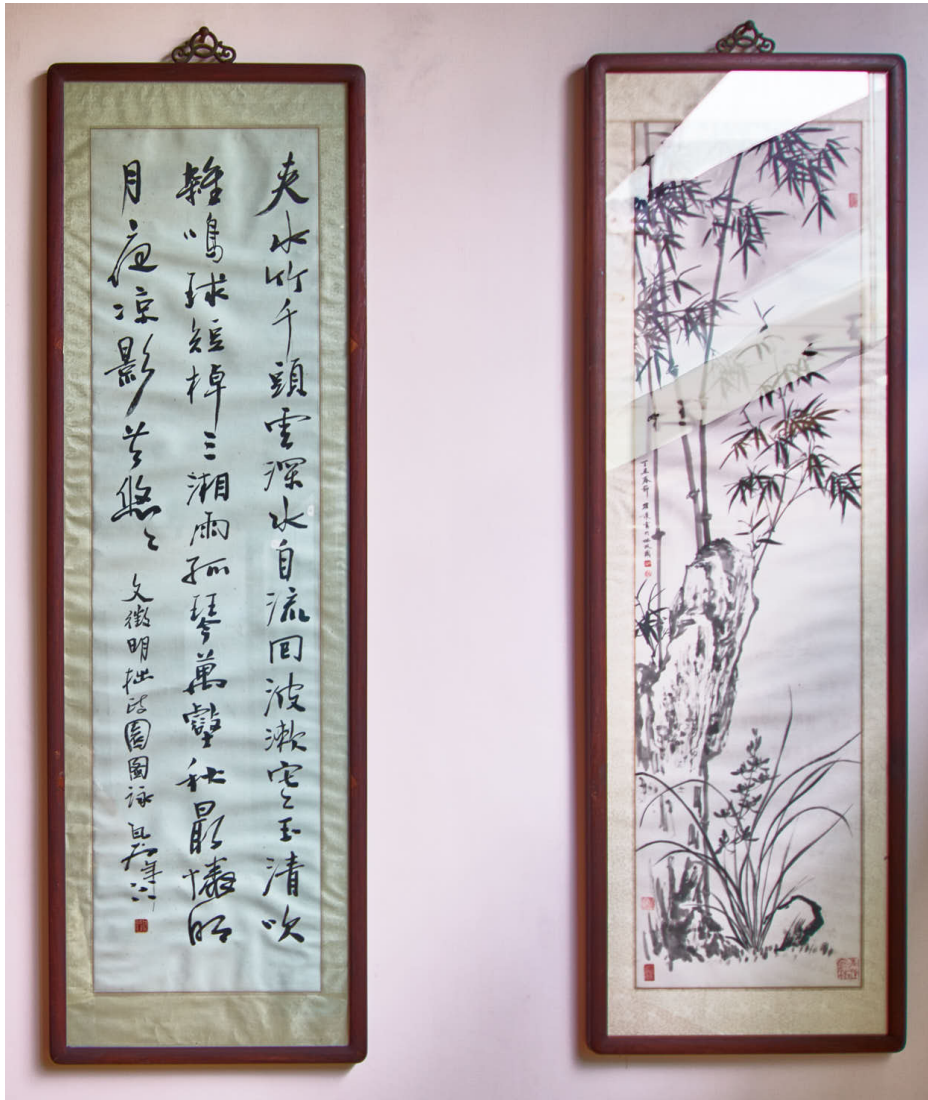 夾水竹千頭雲深水自流回波漱寒玉清吹
雜鳴球短棹三湘雨孤琴萬壑秋最憐明
月夜凉影共悠々 文徵明拙政園圖詠
丁丑春節